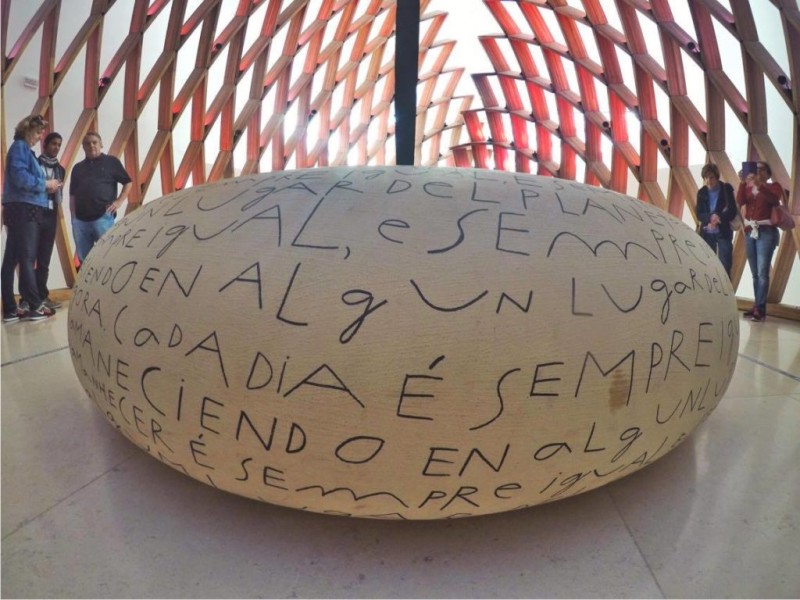 UNLUgaR DEL PLANE
PRE igUAL, e SEmPRE
ENDO EN ALgUN LUgaR DEL
ORA. CaDA DIA É SEMPRE ig
MANECIENDO EN aLgUNLU
NHECER É SEmPRE igUaL